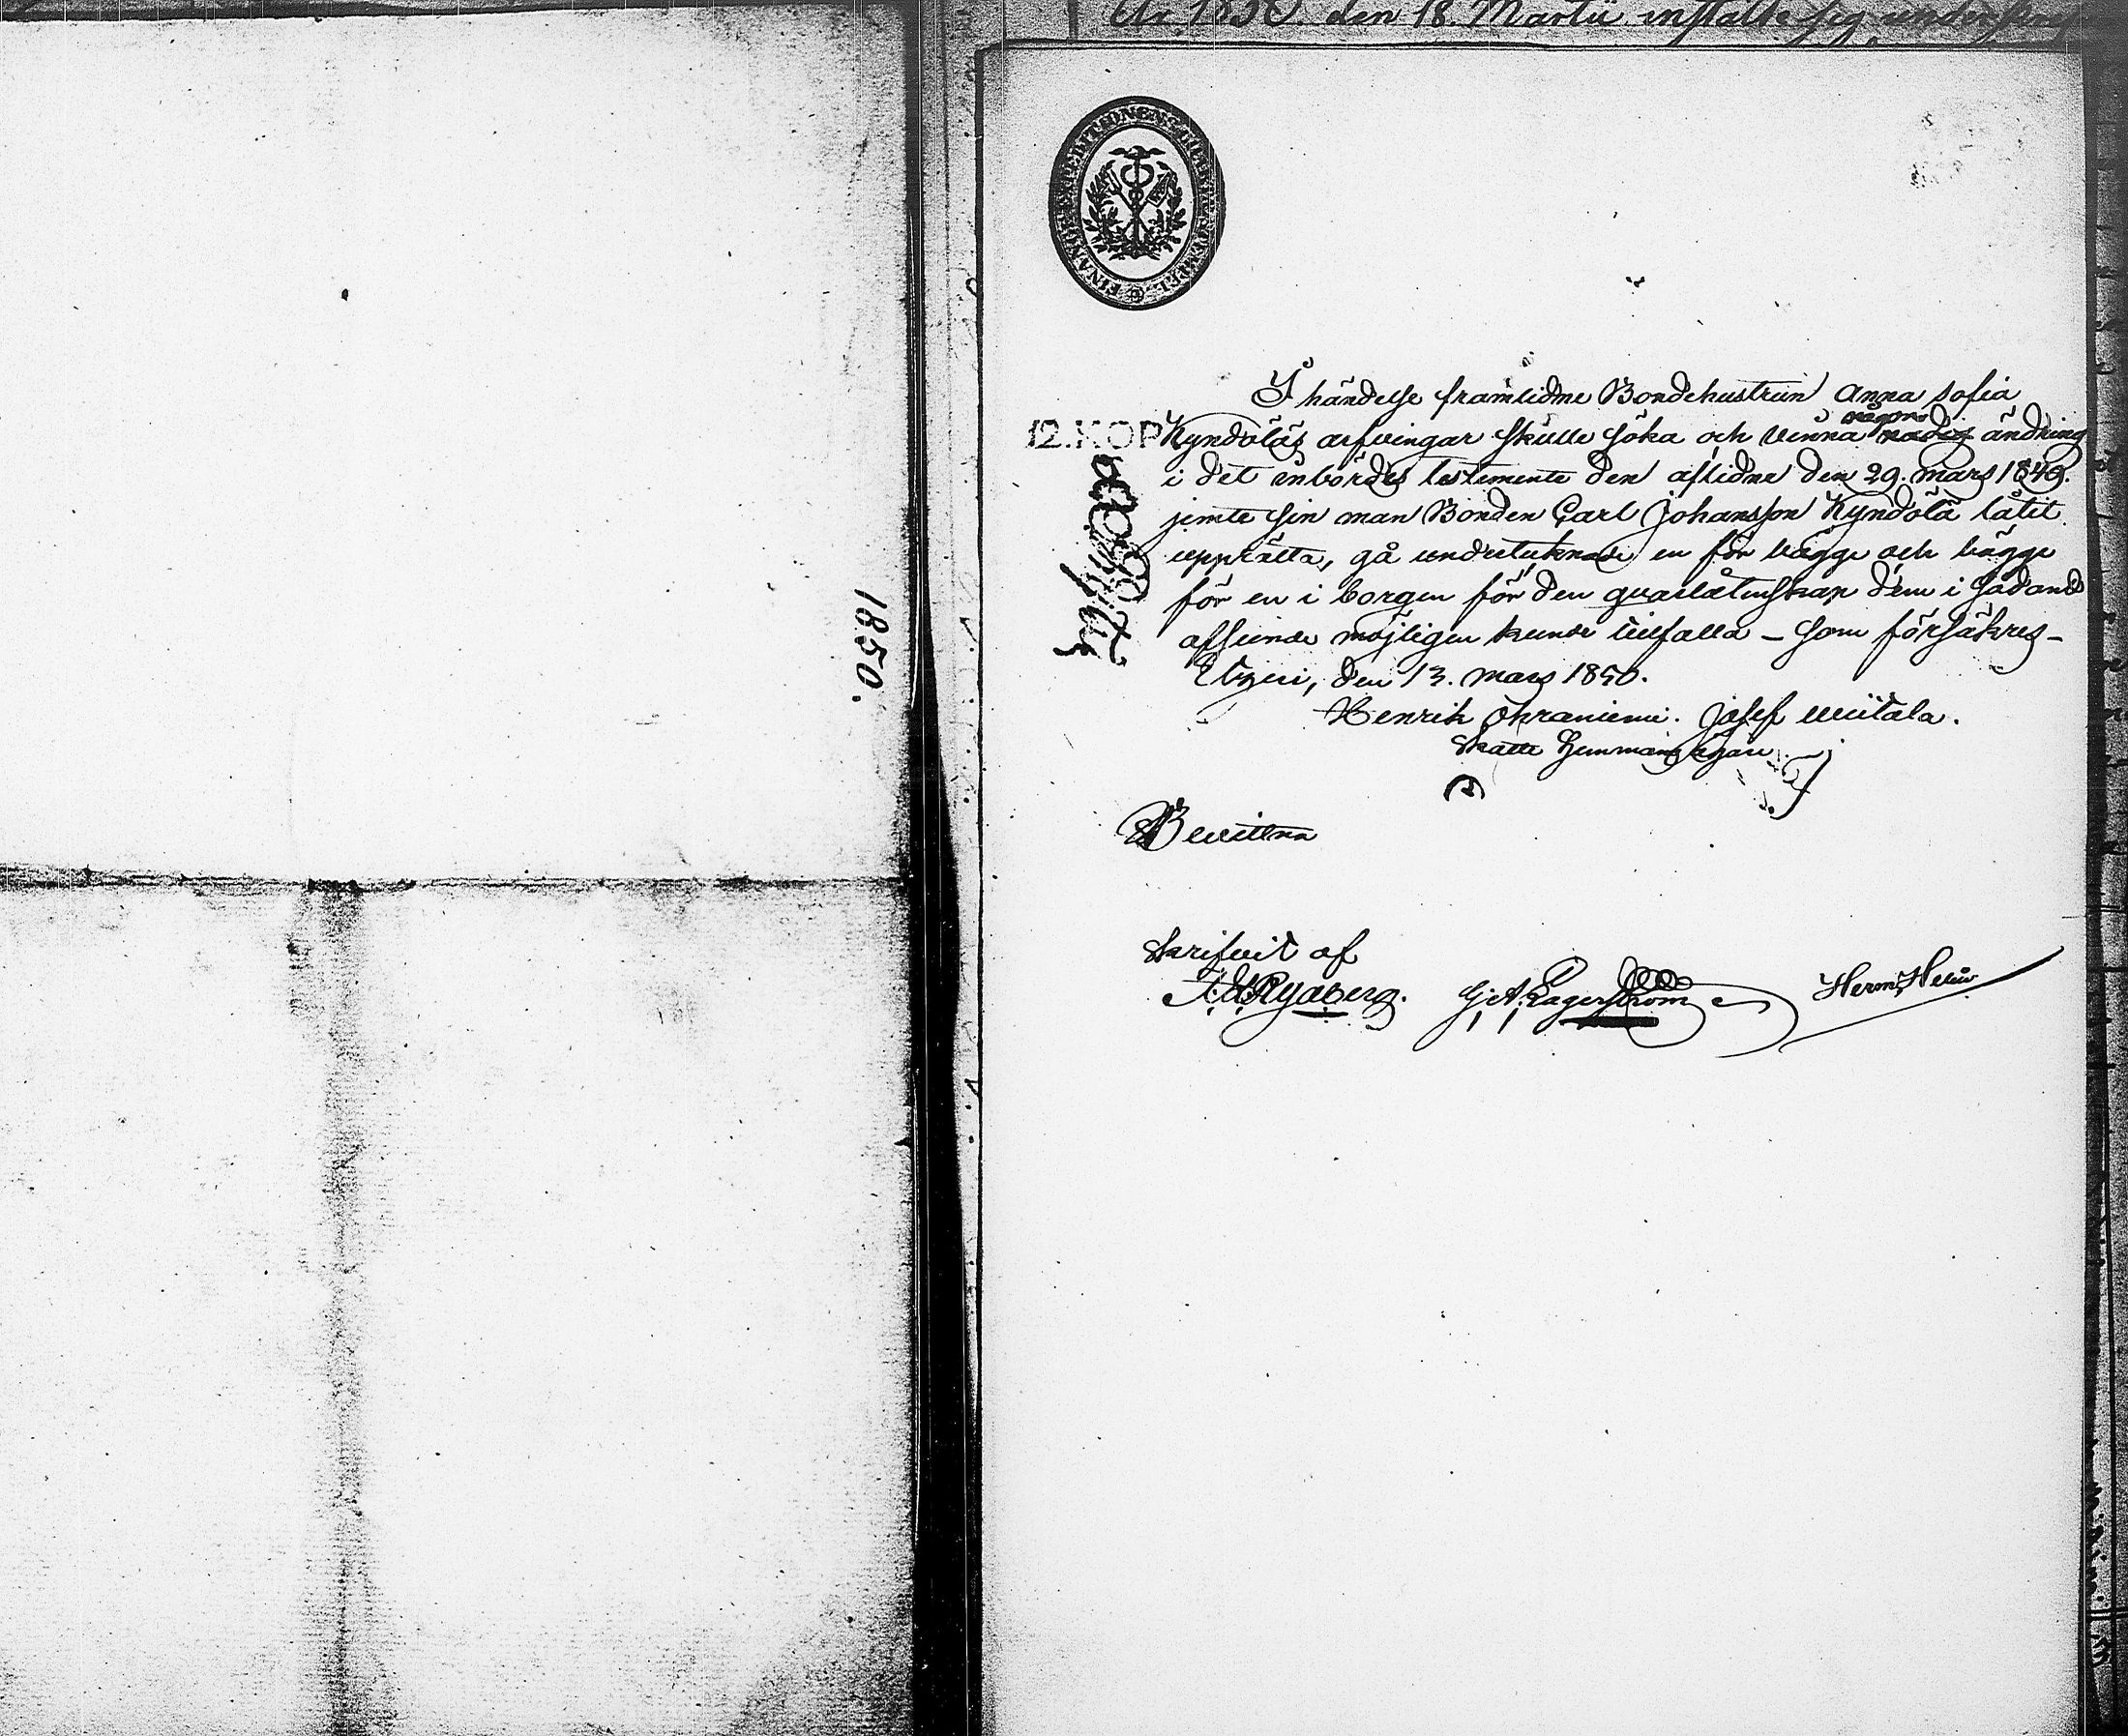 År 1850. den 18. Martii instälte sig
FINANCE EXPEDITIONENS
12. KOP
1850.
I händelse framlidne Bondehustrun Anna Sofia
Kyndöläs arfvingar skulle söka och vinna någon ändring
i det inbördes testemente den aflidne den 29. mars 1849.
jemte sin man Bonden Carl Johansson Kyndölä låtit
upprätta, gå undertecknade en för bägge och bägge
för en i borgen för den qvarlåtenskap dem i sådant
afseende möjligen kunde tillfalla – som försäkres –
den 13. mars 1850.
Henrik Josef
Skatte Hemmans Egare
Bevittna
Skrifvit af
Rydberg. G. A. Lagerström Herm.